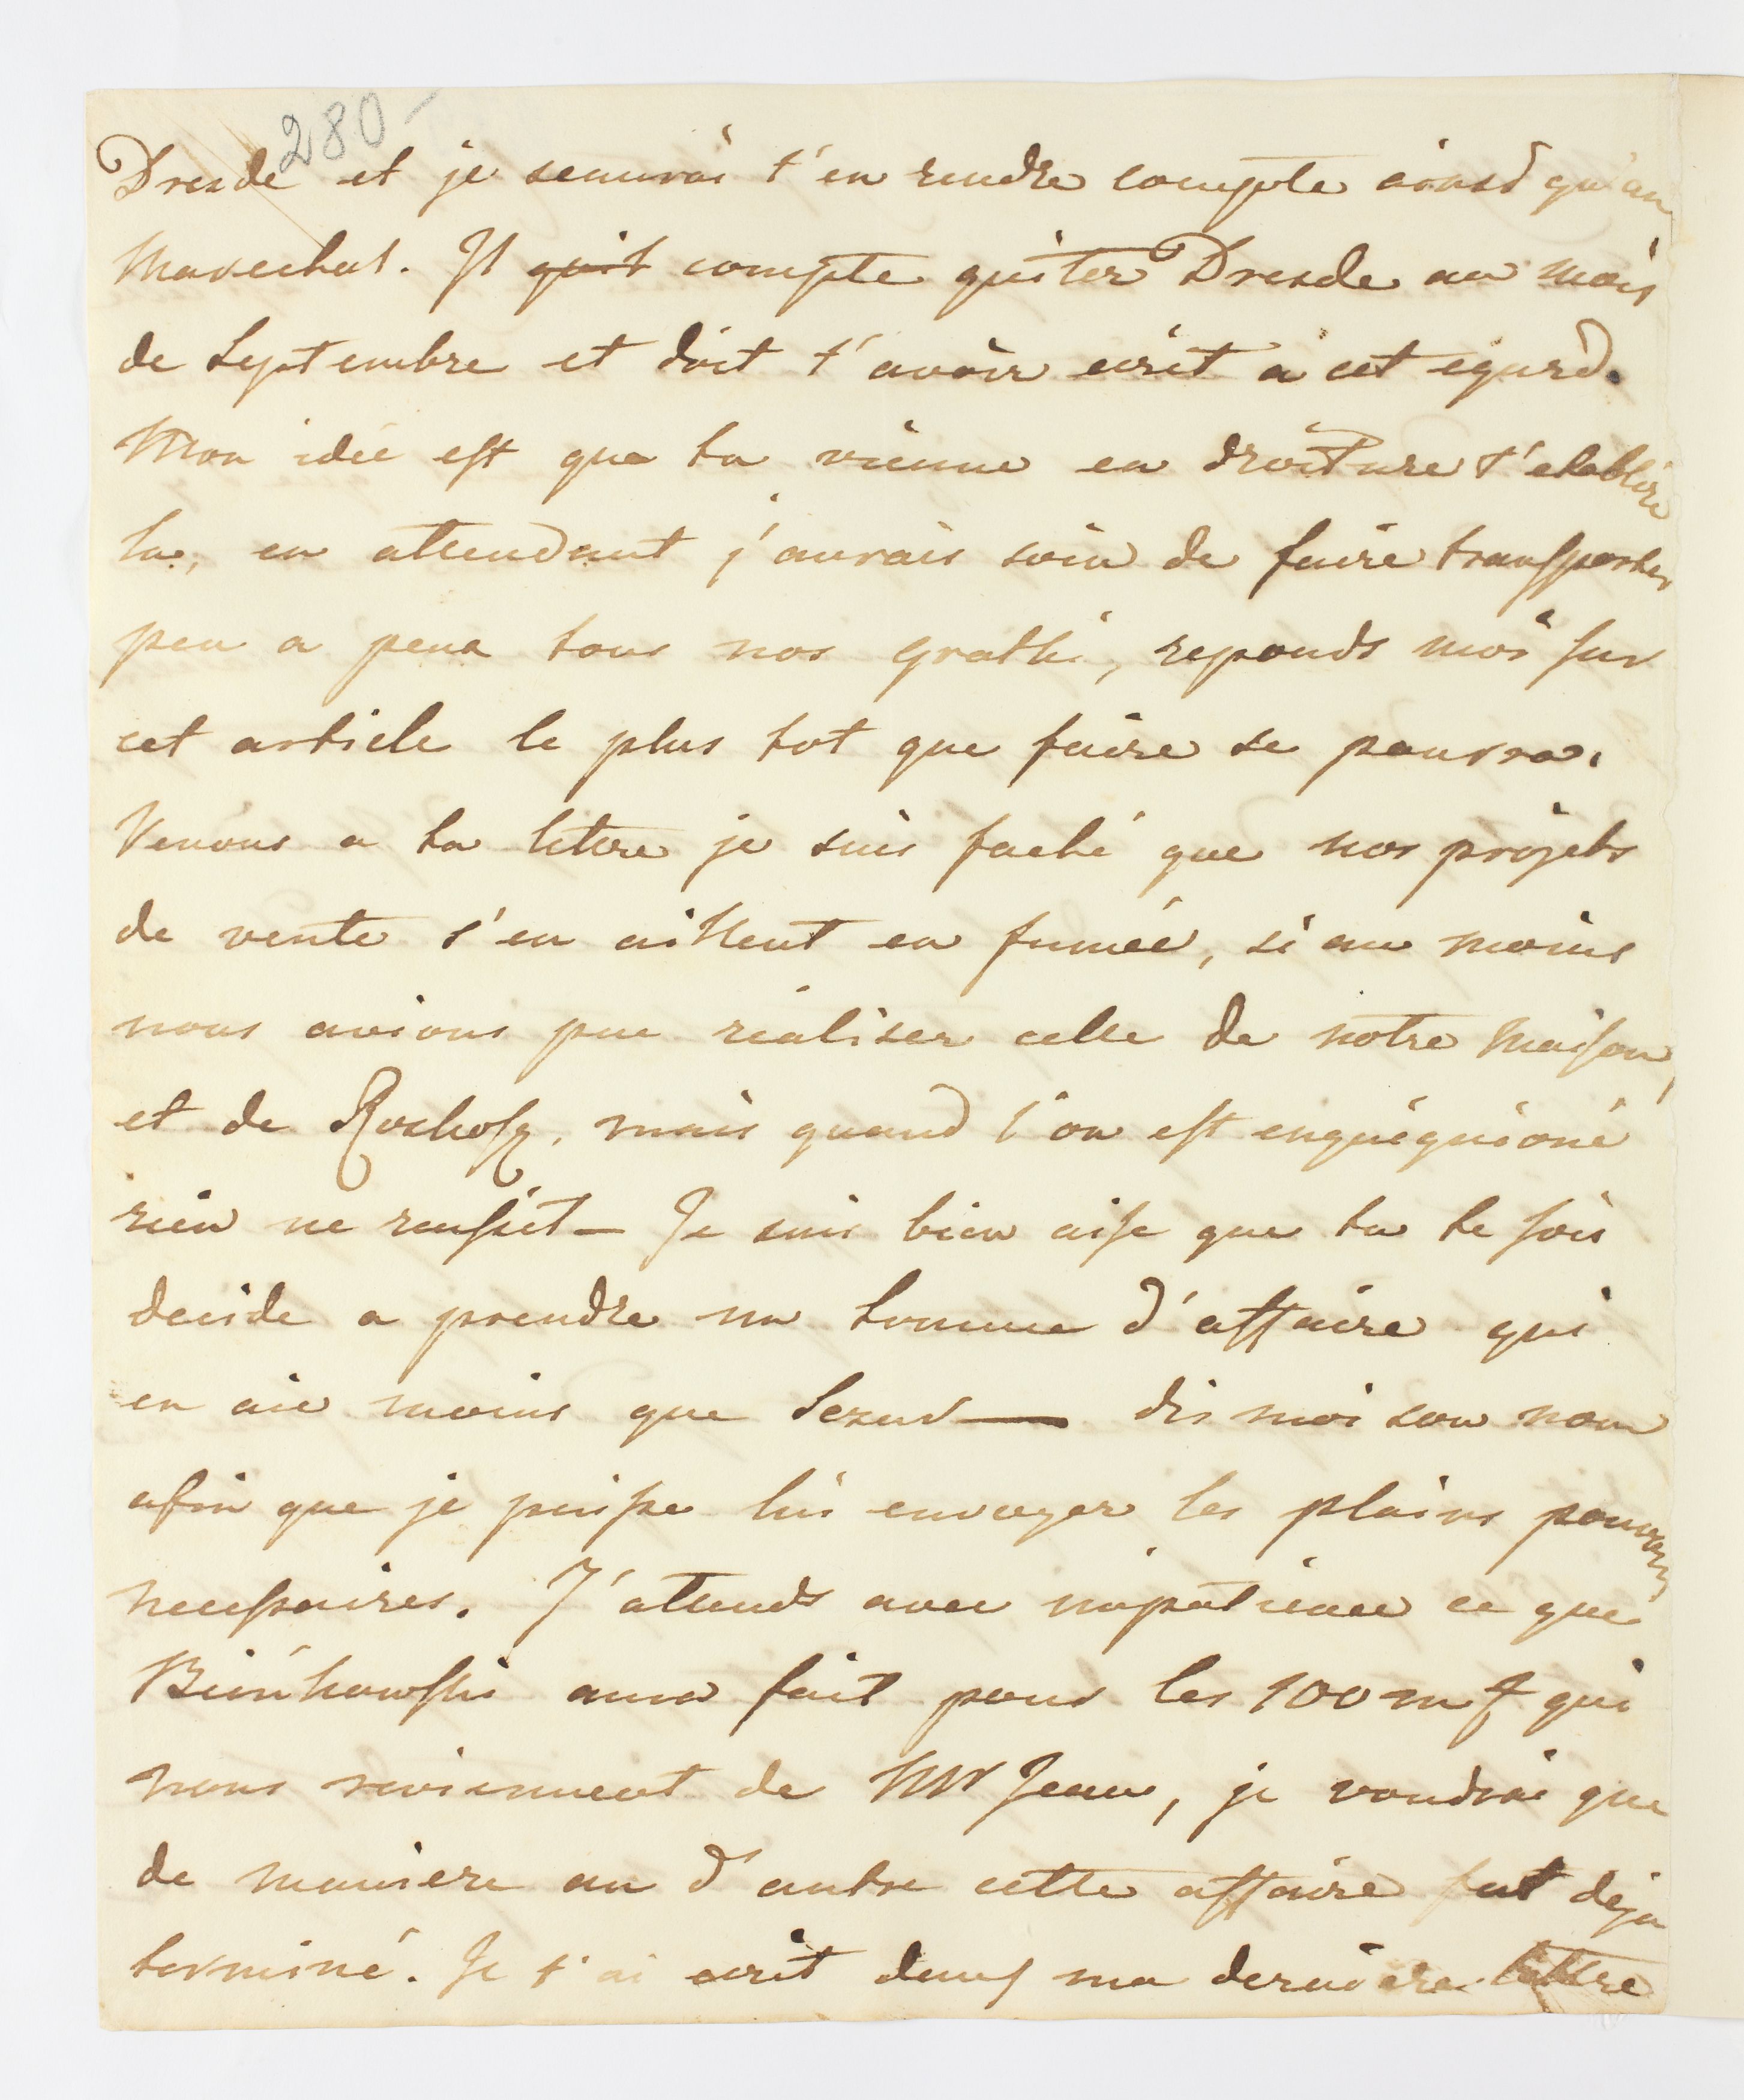 280-
Dresde et je saurai t'en rendre compte ainsi qu'au
Marechal. Il quit compte quiter Dresde au mois
de Septembre et doit t'avoir ecrit a cet egard.
Mon idée est que tu vienne en droiture t'etablire
la, en attendant j'aurais soin de faire transporter
peu a peux tous nos grathi, reponds moi sur
cet article le plus tot que faire se pourra.
Venons a ta lettre je suis faché que nos projets
de vente s'en aillent en fumée, si au moins
nous avions pue réaliser celle de notre Maison,
et de mais quand l'on est enguiguioné
rien ne reussiet — Je suis bien aise que tu te sois
decide a prendre un homme d'affaire qui
en aie moins que dis moi son nom
afin que je puisse lui envoyer les plains pouvoirs
necessaires. J'attends avec impatience ce que
Bieńkowski aura fait pour les 100 m f qui
nous reviennent de Mr Jean, je voudrai que
de maniere ou d'autre cette affaire fut deja
terminé. Je t'ai ecrit dans ma derniere lettre